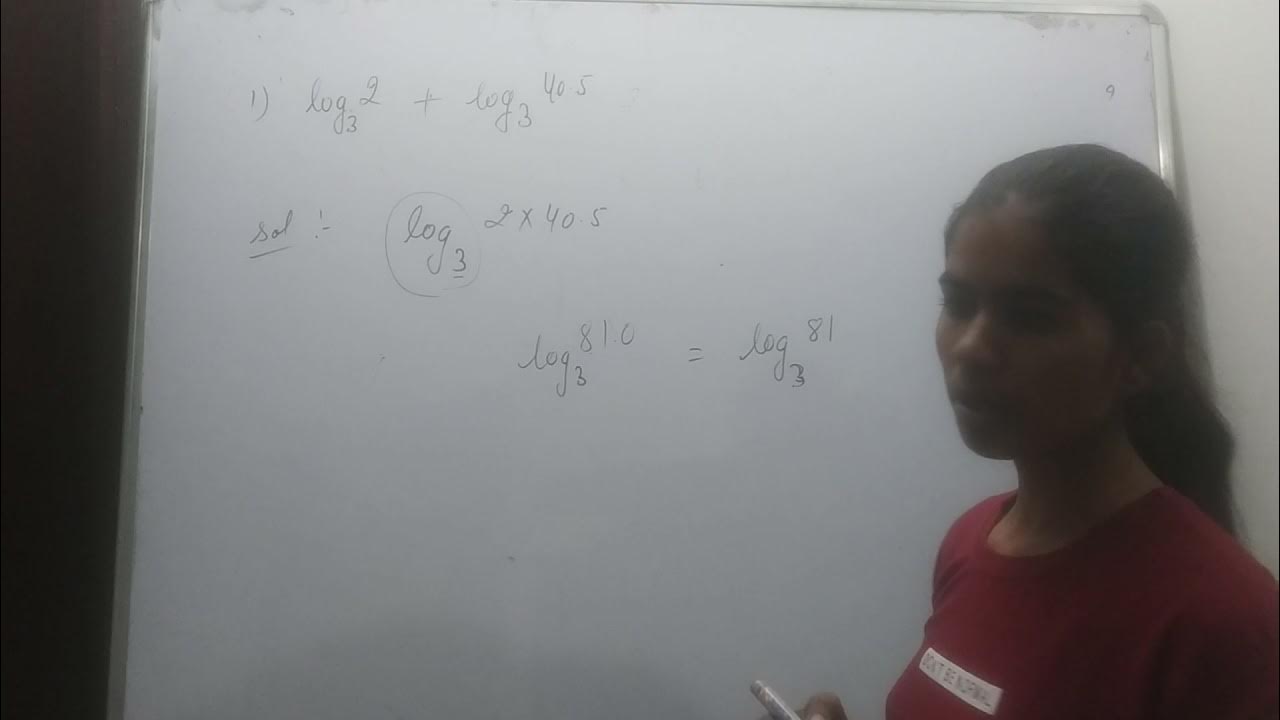 1) log₃2 + log₃40.5
9
sol :- log₃2×40.5
log₃81.0 = log₃81
DON'T BE NORMAL